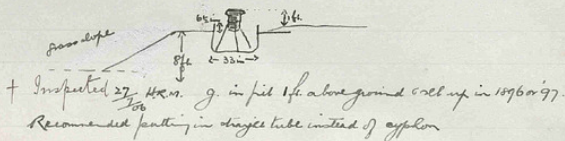 6 in
1 ft.
grass slope
8ft
33 in
+ Inspected 27/7/06 H.R.M. g. in pit 1 ft. above ground & set up in 1896 or '97.
Recommended putting in straight tube instead of syphon